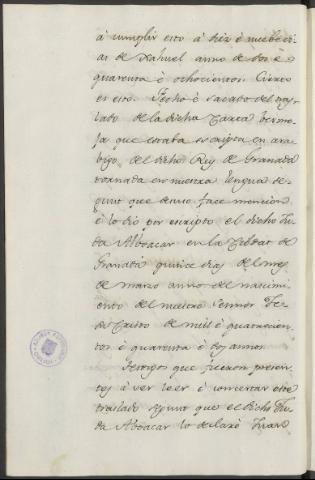 a cumplir esto a diez e nuebe di
as de Xahuel anno de dos è
quarenta è ochocientos. Cierto
es esto. Fecho è sacado del tras
lado de la dicha Carta berme
ja que estaba escripta en ara
bigo del dicho Rey de Granada
tornada en nuestra lengua se
gunt que de uso face mencion
è lo dio por escripto el dicho Ju
da Aboacar en la Cibdat de
Granada quince dias del mes
de marzo anno del nascimi
ento del nuestro Sennor Je
su Cristo de mil è quatrocien
tos è quarenta è dos annos
Testigos que fueron presen
tes à ver leer è concertar este
traslado segunt que el dicho Ju
da Aboacar lo declarò Juan